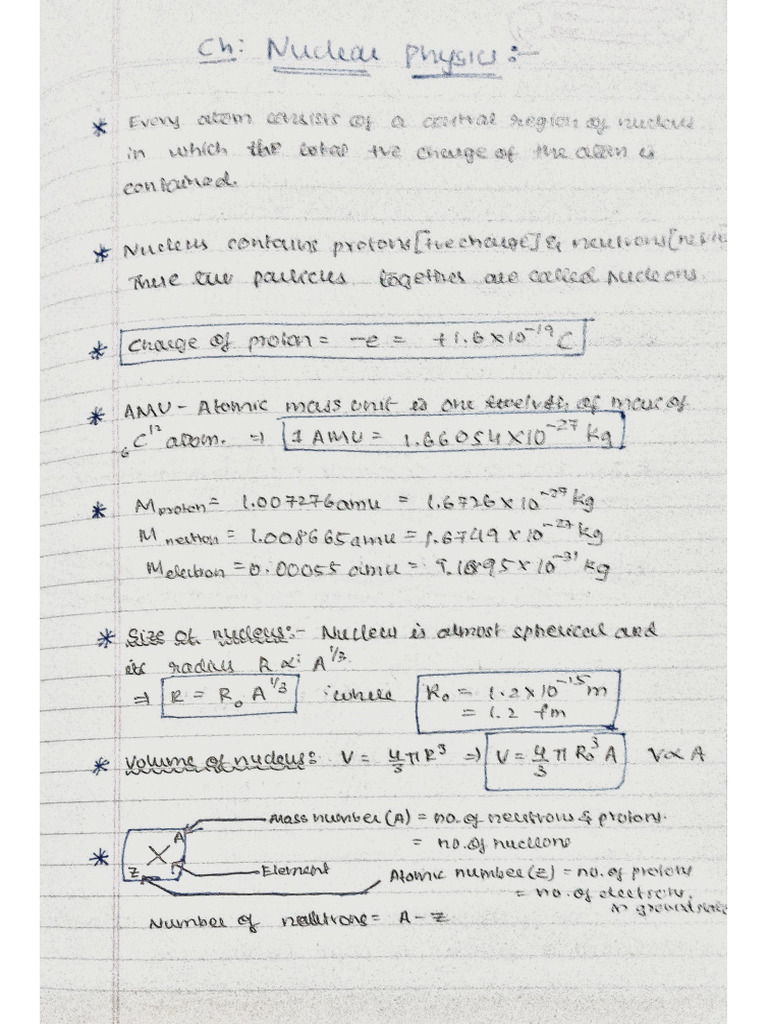 Ch: Nuclear Physics:-
* Every atom consists of a central region of nucleus
in which the total +ve charge of the atom is
contained.
* Nucleus contains protons [+ve charge] & neutrons
These two particles together are called nucleons.
* Charge of proton = -e = +1.6×10⁻¹⁹ C
* AMU - Atomic mass unit is one twelvth of mass of
₆C¹² atom. ⇒ 1 AMU = 1.66054×10⁻²⁷ kg
* Mproton = 1.007276 amu = 1.6726×10⁻²⁷ kg
M neutron = 1.008665 amu = 1.6749×10⁻²⁷ kg
Melectron = 0.00055 amu = × 10⁻³¹ kg
* Size of nucleus:- Nucleus is almost spherical and
its radius R ∝ A^1/3.
⇒ R = R₀ A^1/3 where R₀ = 1.2×10⁻¹⁵ m
= 1.2 fm
* Volume of nucleus: V = 4/3 πR³ ⇒ V = 4/3 π R₀³ A V ∝ A
Mass number (A) = no. of neutrons & protons.
= no. of nucleons
* X A Z Element
Atomic number (Z) = no. of protons
= no. of electrons.
in ground state
Number of neutrons = A - Z